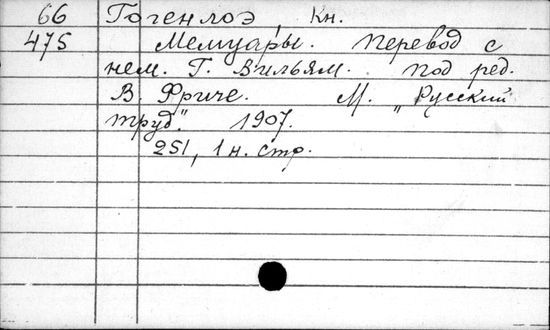 66 Гогенлоэ, Кн.
475 Мемуары. Перевод с
нем. Г. Вильям. Под ред.
В. Фриче. М. „Русский
труд". 1907.
251, 1 н. стр.